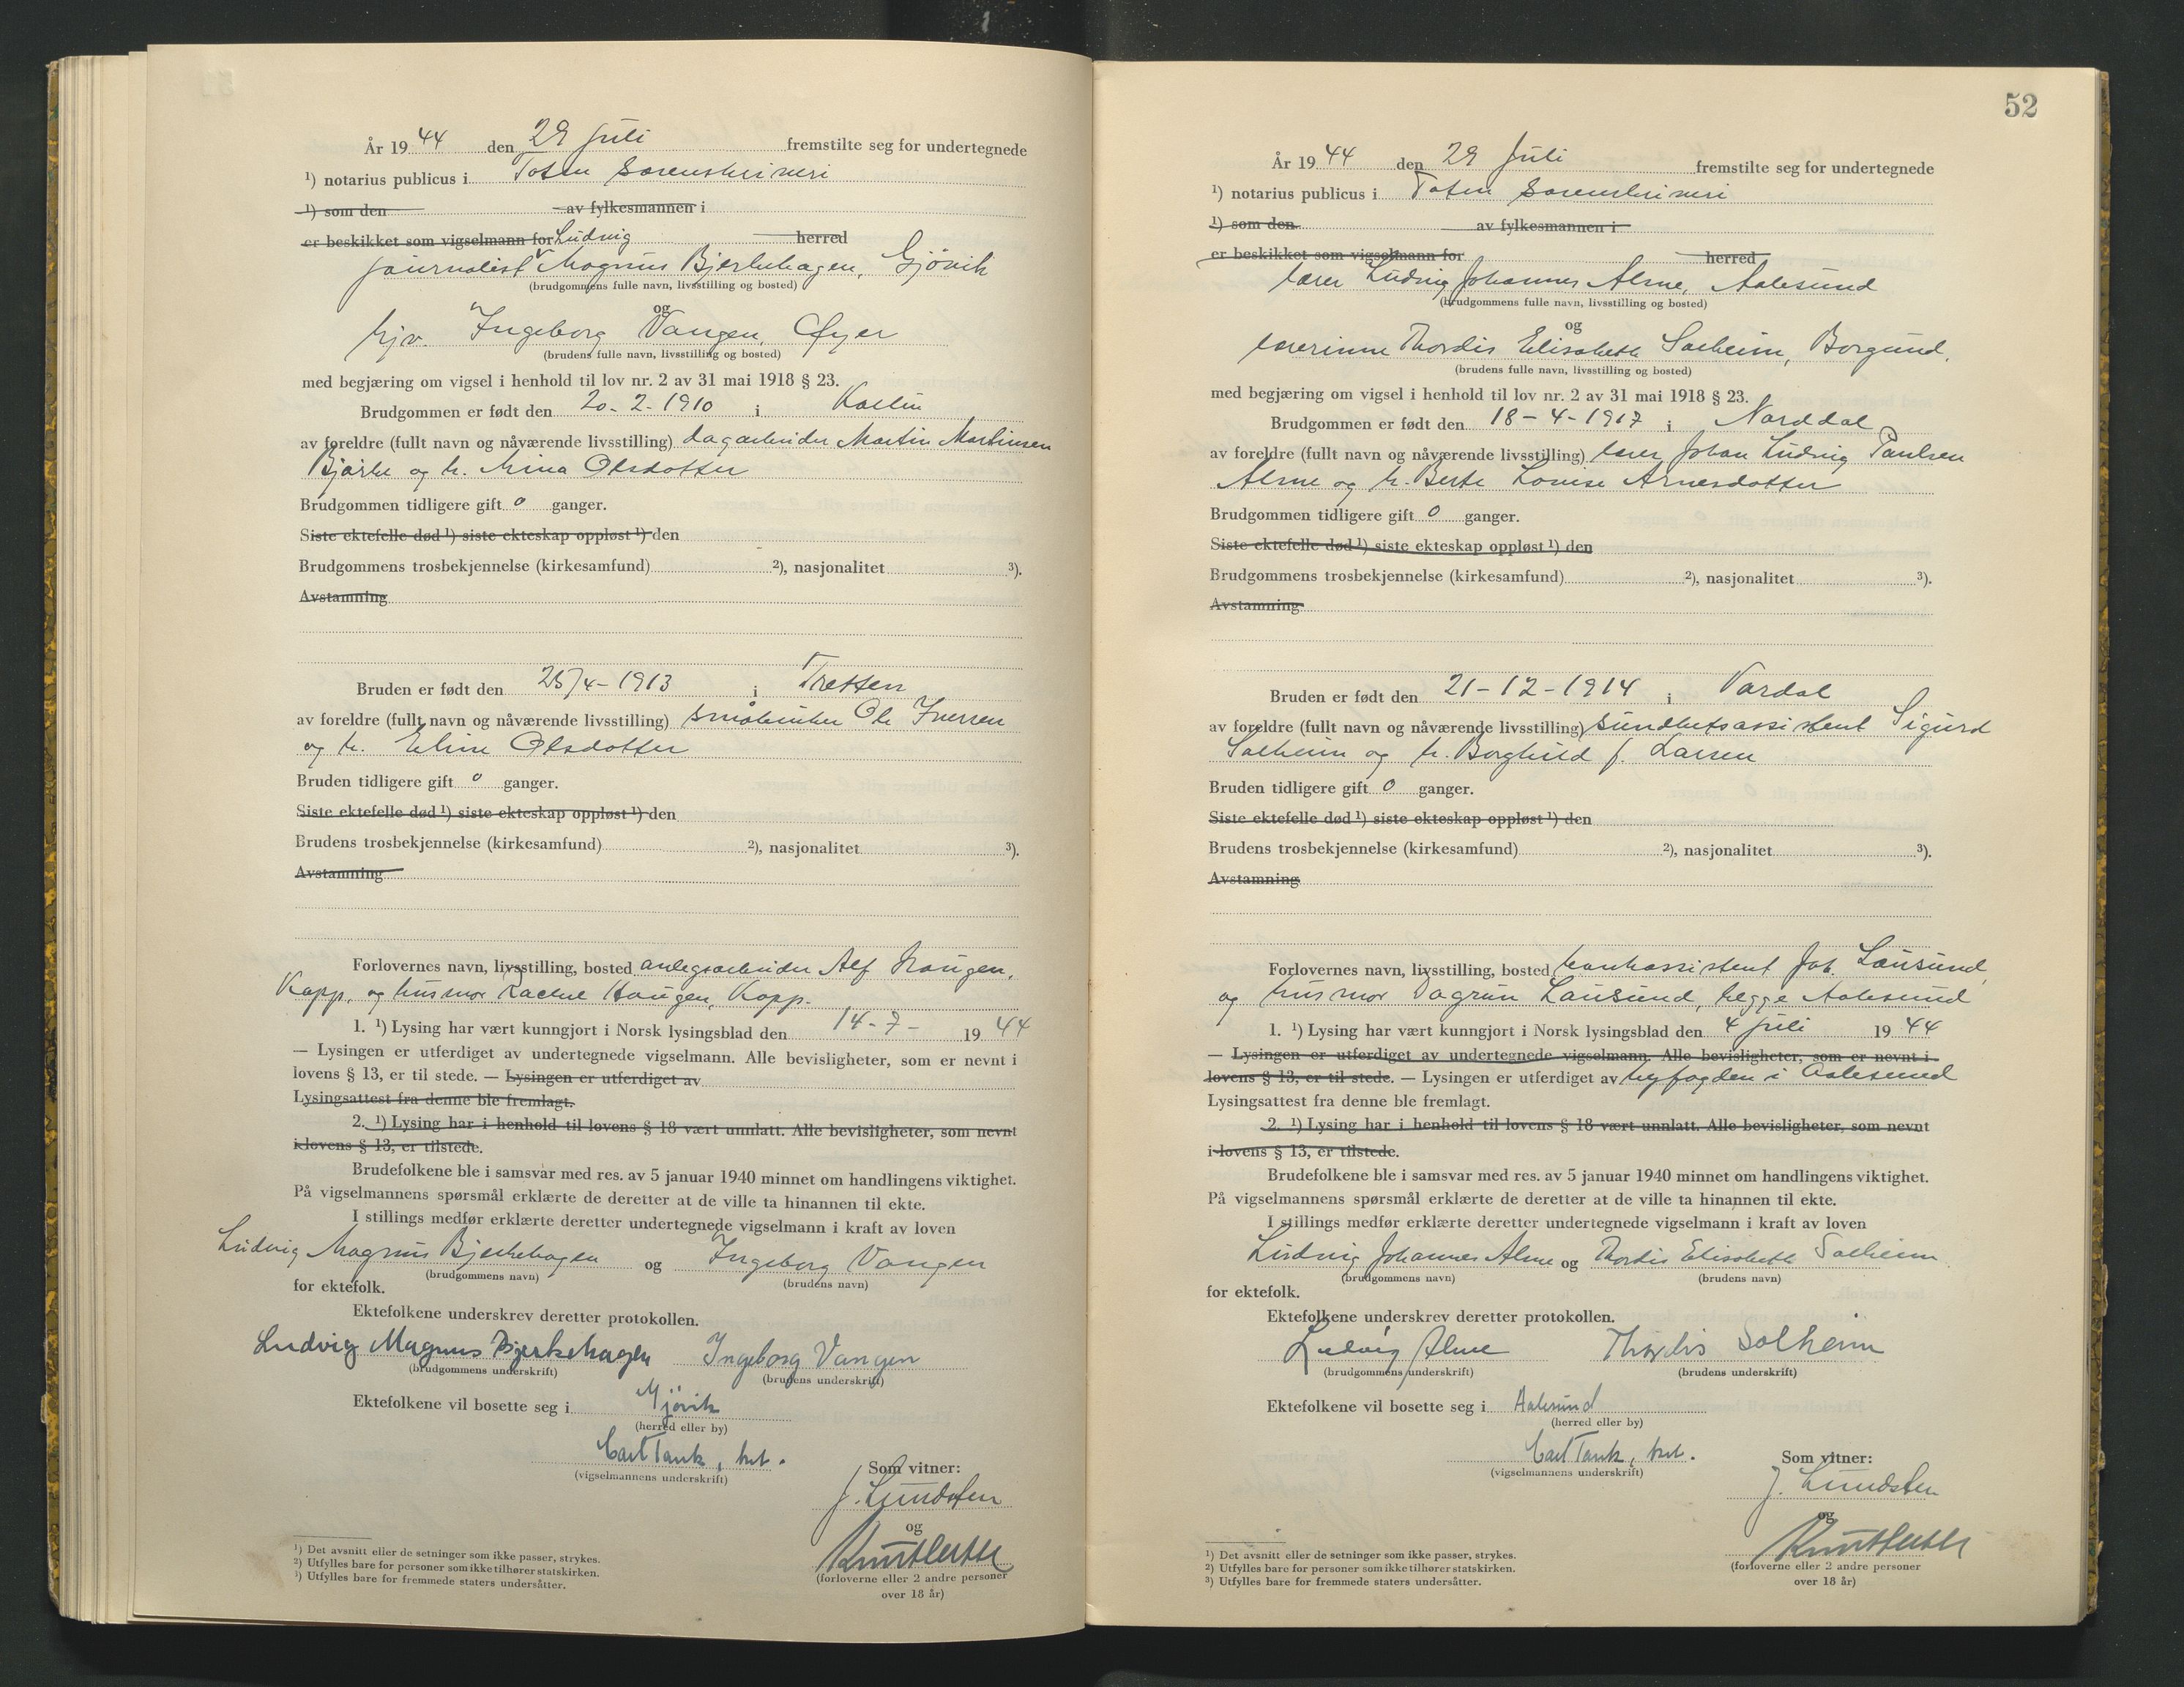 År 19 44 den 29 Juli fremstilte seg for undertegnede
¹) notarius publicus i Toten Sorenskriveri
¹) som den av fylkesmannen i
er beskikket som vigselmann for Ludvig herred
journalist Magnus Bjerkehagen, Gjövik
(brudgommens fulle navn, livsstilling og bosted)
og
hjv. Ingeborg Vangen, Øyer
(brudens fulle navn, livsstilling og bosted)
med begjæring om vigsel i henhold til lov nr. 2 av 31 mai 1918 § 23.
Brudgommen er født den 20-2-1910 i Kolbu
av foreldre (fullt navn og nåværende livsstilling) dagarbeider Martin Martinsen
Bjørke og h. Mina Olsdotter
Brudgommen tidligere gift 0 ganger.
Siste ektefelle død ¹) siste ekteskap oppløst ¹) den
Brudgommens trosbekjennelse (kirkesamfund) ²), nasjonalitet ³).
Avstamning
Bruden er født den 25/4-1913 i Tretten
av foreldre (fullt navn og nåværende livsstilling) småbruker Ole Iversen
og h. Eline Olsdotter
Bruden tidligere gift 0 ganger.
Siste ektefelle død ¹) siste ekteskap oppløst ¹) den
Brudens trosbekjennelse (kirkesamfund) ²), nasjonalitet ³).
Avstamning
Forlovernes navn, livsstilling, bosted anlegsarbeider Alf Haugen,
Kapp, og husmor Rachel Haugen, Kapp.
1. ¹) Lysing har vært kunngjort i Norsk lysingsblad den 14-7- 19 44
— Lysingen er utferdiget av undertegnede vigselmann. Alle bevisligheter, som er nevnt i
lovens § 13, er til stede. — Lysingen er utferdiget av
Lysingsattest fra denne ble fremlagt.
2. ¹) Lysing har i henhold til lovens § 18 vært unnlatt. Alle bevisligheter, som nevnt
i lovens § 13, er tilstede.
Brudefolkene ble i samsvar med res. av 5 januar 1940 minnet om handlingens viktighet.
På vigselmannens spørsmål erklærte de deretter at de ville ta hinannen til ekte.
I stillings medfør erklærte deretter undertegnede vigselmann i kraft av loven
Ludvig Magnus Bjerkehagen og Ingeborg Vangen
(brudgommens navn) (brudens navn)
for ektefolk.
Ektefolkene underskrev deretter protokollen.
Ludvig Magnus Bjerkehagen Ingeborg Vangen
(brudgommens underskrift) (brudens underskrift)
Ektefolkene vil bosette seg i Gjövik
(herred eller by)
Carl Tank, kst.
(vigselmannens underskrift)
Som vitner:
J. Lundsten
og
(forloverne eller 2 andre personer
over 18 år)
¹) Det avsnitt eller de setninger som ikke passer, strykes.
²) Utfylles bare for personer som ikke tilhører statskirken.
³) Utfylles bare for fremmede staters undersåtter.
52
År 19 44 den 29 Juli fremstilte seg for undertegnede
¹) notarius publicus i Toten Sorenskriveri
¹) som den av fylkesmannen i
er beskikket som vigselmann for herred
lærer Ludvig Johannes Alme, Aalesund
(brudgommens fulle navn, livsstilling og bosted)
og
lærerinne Thordis Elisabeth Solheim, Borgund.
(brudens fulle navn, livsstilling og bosted)
med begjæring om vigsel i henhold til lov nr. 2 av 31 mai 1918 § 23.
Brudgommen er født den 18-4-1917 i Norddal
av foreldre (fullt navn og nåværende livsstilling) lærer Johan Ludvig Paulsen
Alme og h. Berte Lovise Arnesdotter
Brudgommen tidligere gift 0 ganger.
Siste ektefelle død ¹) siste ekteskap oppløst ¹) den
Brudgommens trosbekjennelse (kirkesamfund) ²), nasjonalitet ³).
Avstamning
Bruden er født den 21-12-1914 i Vardal
av foreldre (fullt navn og nåværende livsstilling) sundhetsassistent Sigurd
Solheim og h. Borghild f. Larsen
Bruden tidligere gift 0 ganger.
Siste ektefelle død ¹) siste ekteskap oppløst ¹) den
Brudens trosbekjennelse (kirkesamfund) ²), nasjonalitet ³).
Avstamning
Forlovernes navn, livsstilling, bosted bankassistent Joh. Lausund,
og husmor Dagrun Lausund, begge Aalesund
1. ¹) Lysing har vært kunngjort i Norsk lysingsblad den 4 Juli 19 44
— Lysingen er utferdiget av undertegnede vigselmann. Alle bevisligheter, som er nevnt i
lovens § 13, er til stede. — Lysingen er utferdiget av byfogden i Aalesund
Lysingsattest fra denne ble fremlagt.
2. ¹) Lysing har i henhold til lovens § 18 vært unnlatt. Alle bevisligheter, som nevnt
i lovens § 13, er tilstede.
Brudefolkene ble i samsvar med res. av 5 januar 1940 minnet om handlingens viktighet.
På vigselmannens spørsmål erklærte de deretter at de ville ta hinannen til ekte.
I stillings medfør erklærte deretter undertegnede vigselmann i kraft av loven
Ludvig Johannes Alme og Thordis Elisabeth Solheim
(brudgommens navn) (brudens navn)
for ektefolk.
Ektefolkene underskrev deretter protokollen.
Ludvig Alme Thordis Solheim
(brudgommens underskrift) (brudens underskrift)
Ektefolkene vil bosette seg i Aalesund
(herred eller by)
Carl Tank, kst.
(vigselmannens underskrift)
Som vitner:
J. Lundsten
og
(forloverne eller 2 andre personer
over 18 år)
¹) Det avsnitt eller de setninger som ikke passer, strykes.
²) Utfylles bare for personer som ikke tilhører statskirken.
³) Utfylles bare for fremmede staters undersåtter.